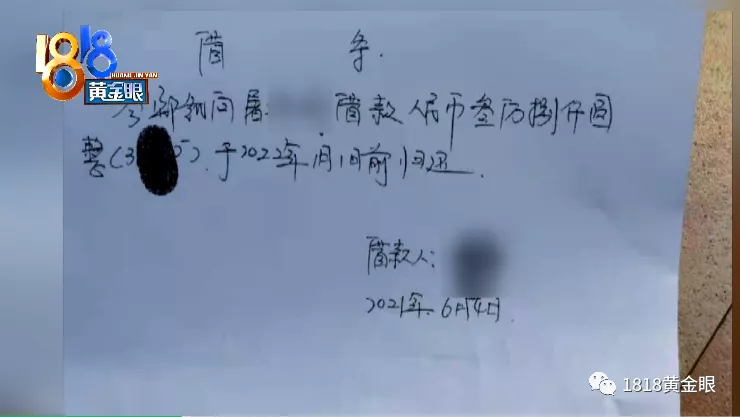 1818
HUANG JIN YAN
黄金眼
借 条.
今 向 借款人民币叁万捌仟圆
整(3 ).于2022年1月1日前归还.
借款人:
2021年6月4日.
1818黄金眼